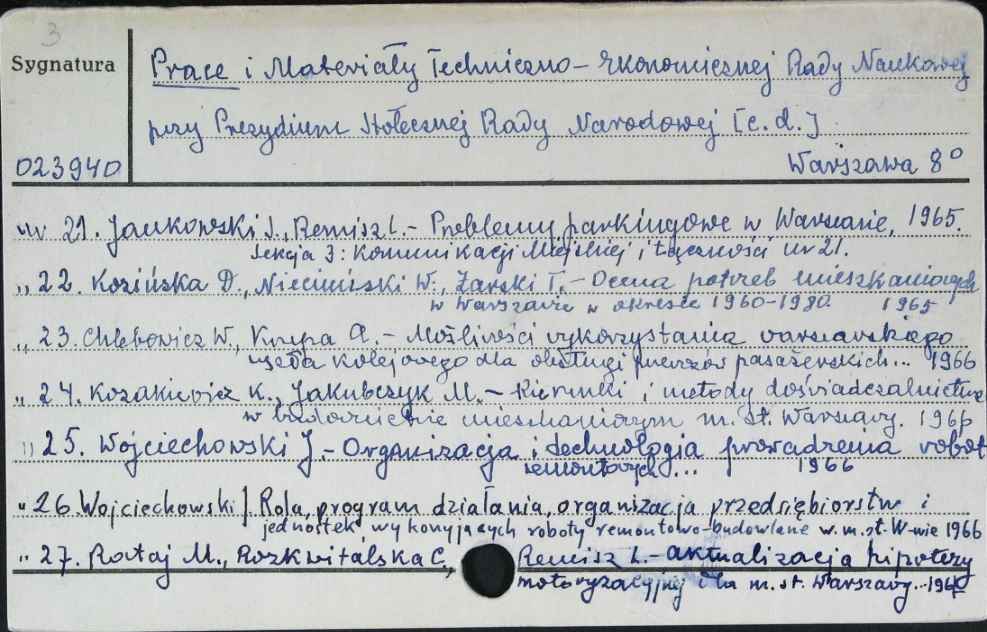 3
Sygnatura
Prace i Materiały Techniczno - Ekonomicznej Rady Naukowej
przy Prezydium Stołecznej Rady Narodowej [c.d.]
023940
Warszawa 8°
nr 21. Jankowski S., Remisz L. - Problemy parkingowe w Warszawie, 1965.
Sekcja 3: Komunikacji Miejskiej i Łączności nr 21.
" 22. Kozińska D., Niecimirski W., Żarski T. - Ocena potrzeb mieszkaniowych
w Warszawie w okresie 1960-1980. 1965
" 23. Chlebowicz W., Krupa A. - Możliwości wykorzystania warszawskiego
węzła kolejowego dla obsługi przewozów pasażerskich... 1966
" 24. Kozakiewicz K., Jakubczyk M. - Kierunki i metody doświadczalnictwa
w budownictwie mieszkaniowym m. st. Warszawy. 1966
" 25. Wojciechowski J. - Organizacja i technologia prowadzenia robót
remontowych... 1966
" 26. Wojciechowski J Rola, program działania, organizacja przedsiębiorstw i
jednostek wykonyjących roboty remontowo-budowlane w.m.st. W-wie 1966
" 27. Rataj M., Rozkwitalska C., Remisz L. - aktualizacja hipotezy
motoryzacyjnej dla m. st. Warszawy...